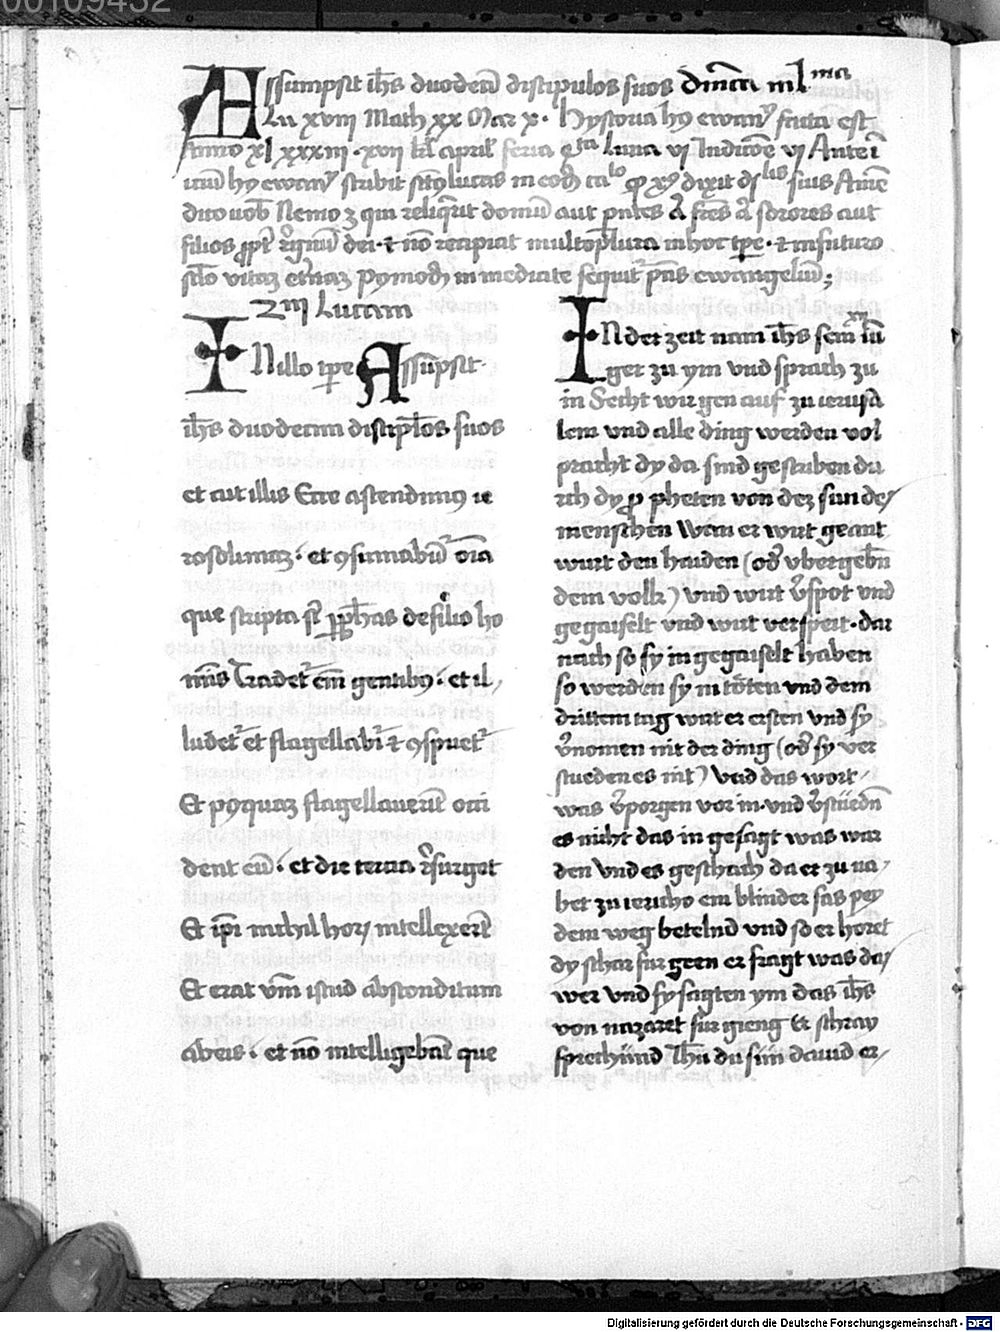 Assumpsit ih̄s duodeciⁿ discipulos suos Dn̄ica in lᵐᵃ
Lu xviij Math xx Mar x. Hystoria hꝰ ewanꝰ facta est
Anno xl xxxiij. xvij kl̄ april feria luna vj Indicōe vj Ante
hꝰ ewanꝰ scribit sctꝰ lucas in eodē xp̄c dixit Amē
dico uob Nemo ꝫ qui reliq̄rit domū aut pn̄tes aͭ frēs aͭ sorores aut
filios ꝓpt̄ r̄gnū dei. ⁊ nō recipiat multoplura in hoc tp̄e. ⁊ in futuro
sc̄lo vitaꝫ et̄naꝫ Pꝰmodū in mediate sequit̄ pn̄s ewangeliū;
Lucam
In illo tp̄e Assūpsit
ih̄s duodecim discipl̄os suos
et ait illis Ecce ascendimꝰ ie
rosolimaꝫ. et ꝯsumabūt̄ oīa
que scripta st̄ ꝑ ꝓph̄as de filio ho
mīs Tradet̄ em̄ gentibꝰ. et il/
ludet̄ et flagellabit̄ ⁊ ꝯspuet̄
Et pꝰquaꝫ flagellauerīt occi
dent eū. et die tercia r̄surget
Et ip̄i nichil horꝝ intellexer̄t
Et erat v̄m istud absconditum
ab eis. et nō intelligebāt que
In der zeit nam ih̄s sein xij iū
ger zu ym vnd sprach zu
in Secht wir gen auf zu ierusa
lem vnd alle ding werden vol
pracht dy da sind gescriben du
rch dy ꝓpheten von dez sun dez/
menschen Wan er wirt geant
wurt den haiden (od̄ vbergebn̄
dem volk) vnd wirt v̄spot vnd
gegaiselt vnd wirt verspeit. dar
nach so sy in gegaiselt haben
so werden sy in töten vnd dem
drittem tag wirt er ersten vnd sy
v̄nomen nit der ding (od̄ sy ver
stueden es nit) vnd das wort/
was v̄porgen vor in. vnd v̄stüedn̄
es nicht das in gesagt was wor
den vnd es geschach da er zu na/
het zu iericho ein blinder sas pey
dem weg betelnd vnd so er horet
dy schar fur geen er fragt was daz/
wer vnd sy sagten ym das ih̄s
von nazaret fur gieng Er schray
sprechünd Ih̄u du sün dauid er/
Digitalisierung gefördert durch die Deutsche Forschungsgemeinschaft - DFG